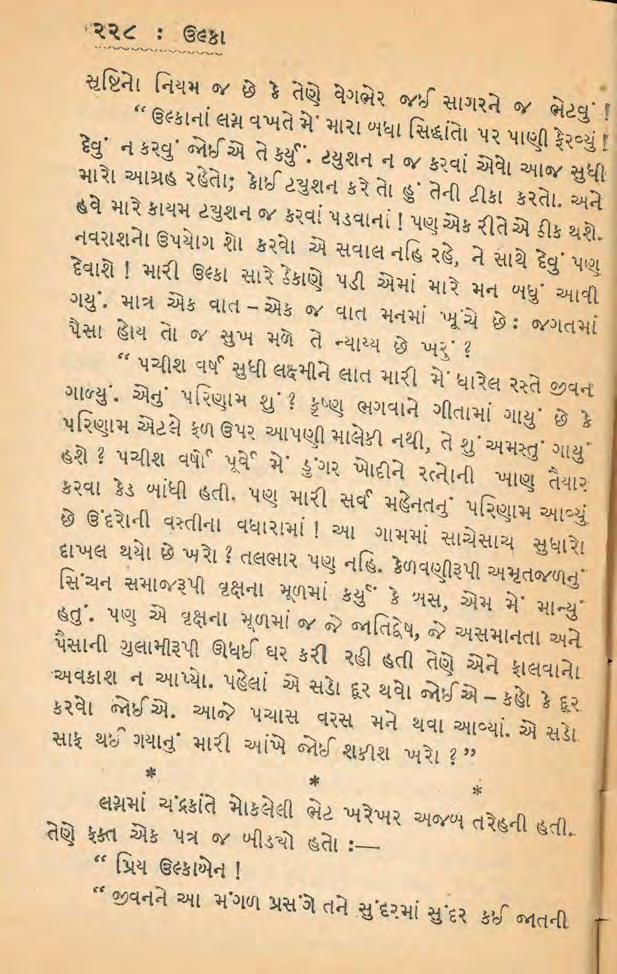 ૨૨૮ : ઉલ્કા
સૃષ્ટિનો નિયમ જ છે કે તેણે વેગભેર જઈ સાગરને જ ભેટવું !
“ ઉલ્કાનાં લગ્ન વખતે મેં મારા બધા સિદ્ધાંતો પર પાણી ફેરવ્યું !
દેવું ન કરવું જોઈએ તે કર્યું. ટયુશન ન જ કરવાં એવો આજ સુધી
મારો આગ્રહ રહેતો; કોઈ ટયુશન કરે તો હું તેની ટીકા કરતો. અને
હવે મારે કાયમ ટયુશન જ કરવાં પડવાનાં ! પણ એક રીતે એ ઠીક થશે.
નવરાશનો ઉપયોગ શો કરવો એ સવાલ નહિ રહે, ને સાથે દેવું પણ
દેવાશે ! મારી ઉલ્કા સારે ઠેકાણે પડી એમાં મારે મન બધું આવી
ગયું. માત્ર એક વાત – એક જ વાત મનમાં ખૂંચે છે : જગતમાં
પૈસા હોય તો જ સુખ મળે તે ન્યાય્ય છે ખરું ?
“ પચીશ વર્ષ સુધી લક્ષ્મીને લાત મારી મેં ધારેલ રસ્તે જીવન
ગાળ્યું. એનું પરિણામ શું ? કૃષ્ણ ભગવાને ગીતામાં ગાયું છે કે
પરિણામ એટલે ફળ ઉપર આપણી માલેકી નથી, તે શું અમસ્તું ગાયું
હશે ? પચીશ વર્ષો પૂર્વે મેં ડુંગર ખોદીને રત્નોની ખાણ તૈયાર
કરવા કેડ બાંધી હતી. પણ મારી સર્વ મહેનતનું પરિણામ આવ્યું
છે ઉંદરોની વસ્તીના વધારામાં ! આ ગામમાં સાચેસાચ સુધારો
દાખલ થયો છે ખરો ? તલભાર પણ નહિ. કેળવણીરૂપી અમૃતજળનું
સિંચન સમાજરૂપી વૃક્ષના મૂળમાં કર્યું કે બસ, એમ મેં માન્યું
હતું. પણ એ વૃક્ષના મૂળમાં જ જે જાતિદ્વેષ, જે અસમાનતા અને
પૈસાની ગુલામીરૂપી ઊધઈ ઘર કરી રહી હતી તેણે એને ફાલવાનો
અવકાશ ન આપ્યો. પહેલાં એ સડો દૂર થવો જોઈએ – કહો કે દૂર
કરવો જોઈએ. આજે પચાસ વરસ મને થવા આવ્યાં. એ સડો
સાફ થઈ ગયાનું મારી આંખે જોઈ શકીશ ખરો ? ”
* * *
લગ્નમાં ચંદ્રકાંતે મોકલેલી ભેટ ખરેખર અજબ તરેહની હતી.
તેણે ફક્ત એક પત્ર જ બીડયો હતો :—
“ પ્રિય ઉલ્કાબેન !
“ જીવનને આ મંગળ પ્રસંગે તને સુંદરમાં સુંદર કઈ જાતની